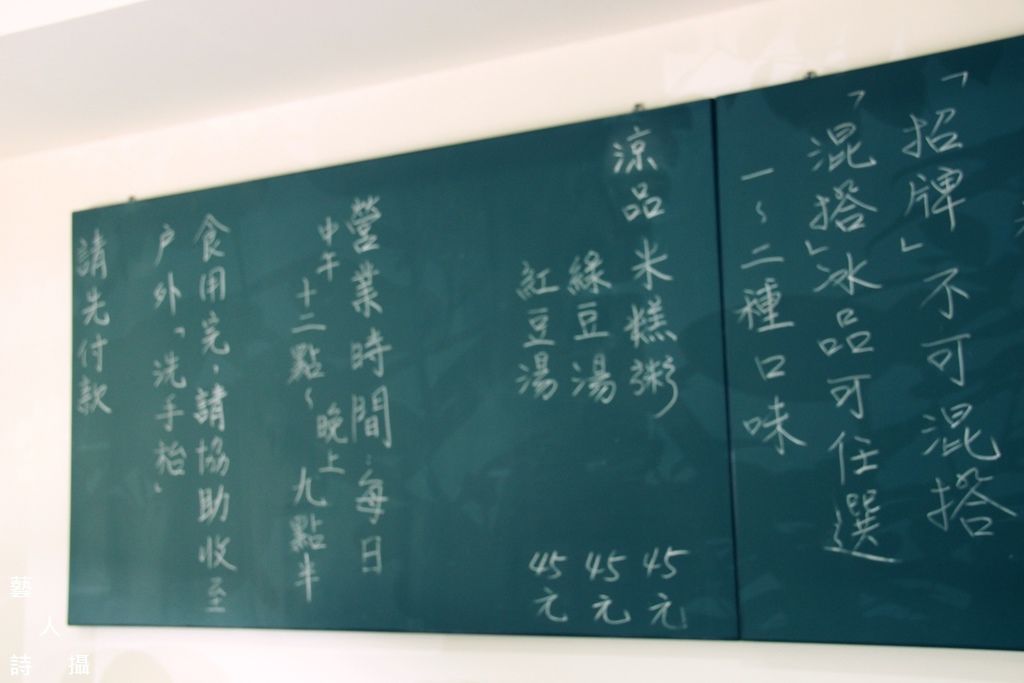 「招牌」不可混搭
「混搭」冰品可任選
一~二種口味
涼品 米糕粥 45元
綠豆湯 45元
紅豆湯 45元
營業時間:每日
中午 晚上
十二點~九點半
食用完,請協助收至
戶外「洗手枱」
請先付款
藝人詩攝